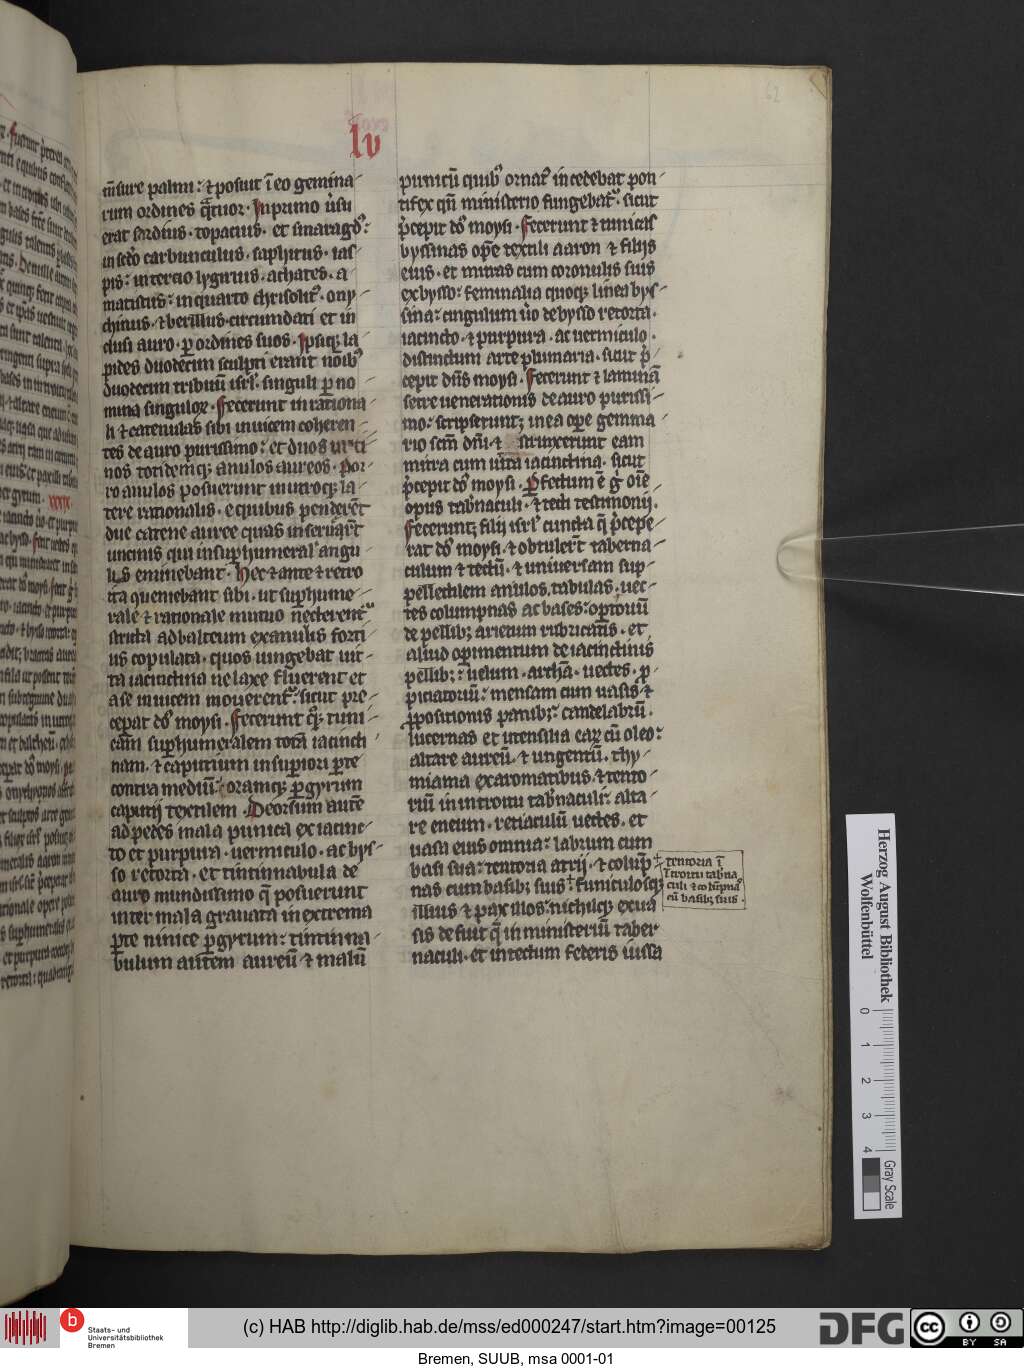 62
lv
m̄sure palmi: ⁊ posuit ī eo gemina
rum ordines q̄tuor. In primo ūsu
erat sardius. topacius. et smaragdꝰ:
in scd̄o carbunculus. saphirus. ias
pis: in tercio ligirius. achates. a
matistus: in quarto chrisolitꝰ. ony
chinus. ⁊ berillus. circumdati et in
clusi auro. ꝑ ordines suos. Ipsiqꝫ la
pides duodecim sculpti erant noībꝰ
duodecim tribuū isrl̄. singuli ꝑ no
mina singuloꝝ. Fecerunt in rationa
li ⁊ catenulas sibi inuicem coheren
tes de auro purissimo: et duos unci
nos totidemqꝫ anulos aureos. Por
ro anulos posuerunt in utroqꝫ la
tere rationalis. e quibus penderēt
due catene auree quas inseruerūt
uncinis qui in suphumeralꝰ angu
lis eminebant. Hec ⁊ ante ⁊ retro
ita queniebant sibi. ut suphume
rale ⁊ rationale mutuo necterentꝰ
stricta ad balteum ex anulis forti
us copulata. quos iungebat uit
ta iacinctina ne laxe fluerent et
a se inuicem mouerentꝰ: sicut pre
cepat dn̄s moysi. Fecerunt q̄ꝫ tuni
cam suphumeralem totā iacincti
nam. ⁊ caputium in supiori ꝑte
contra mediū: oramqꝫ ꝑ gyrum
caputij textilem. Deorsum autē
ad pedes mala punica ex iacinc
to et purpura. uermiculo. ac bys
so retorta. et tintinnabula de
auro mundissimo q̄ posuerunt
inter mala granata in extrema
ꝑte tunice ꝑ gyrum: tintinna
bulum autem aureū ⁊ malū
punicū quibꝰ ornatꝰ incedebat pon
tifex qn̄ ministerio fungebatꝰ. sicut
p̄cepit dn̄s moysi. Fecerunt ⁊ tunicas
byssinas ope textili aaron ⁊ filijs
eius. et mitras cum coronulis suis
ex bysso: feminalia quoqꝫ linea bys
sina: cingulum ūo de bysso retorta.
iacincto. ⁊ purpura. ac uermiculo.
distinctum arte plumaria. sicut p̄
cepit dn̄s moysi. Fecerunt ⁊ laminā
sacre uenerationis de auro purissi
mo: scripseruntqꝫ in ea ope gemma
rio scm̄ dn̄i. ⁊ strinxerunt eam
mitra cum uitta iacinctina. sicut
p̄cepit dn̄s moysi. Pfectum ē g̊ om̄e
opus tab̄naculi. ⁊ tecti testimonij.
Feceruntqꝫ filij isrl̄ cuncta q̄ p̄cepe
rat dn̄s moysi. ⁊ obtulerūt taberna
culum ⁊ tectū. ⁊ uniuersam sup
pellectilem anulos. tabulas. uec
tes columpnas ac bases: optoriū
de pellibꝫ arietum rubricatis. et
aliud opimentum de iacinctinis
pellibꝫ: uelum. archā. uectes. ꝓ
piciatoriū: mensam cum uasis ⁊
ꝓpositionis panibꝫ: candelabrū.
lucernas et utensilia eaꝝ cū oleo:
altare aureū. ⁊ ungentū. thy
miama ex aromatibus. ⁊ tento
riū in introitu tab̄naculi: alta
re eneum. retiaculū uectes. et
uasa eius omnia: labrum cum
basi sua: tentoria atrij. ⁊ colūp
nas cum basibꝫ suis: funiculosqꝫ
illius ⁊ paxillos: nichilqꝫ ex ua
sis defuit q̄ in ministeriū taber
naculi. et in tectum federis iussa
tentoria ī
ītroitu tab̄na
culi ⁊ colūpnas
cū basibꝫ suis.
Herzog August Bibliothek
Wolfenbüttel
0 1 2 3 4
Gray Scale
b
Staats- und
Universitätsbibliothek
Bremen
(c) HAB http://diglib.hab.de/mss/ed000247/start.htm?image=00125
DFG
cc
BY SA
Bremen, SUUB, msa 0001-01